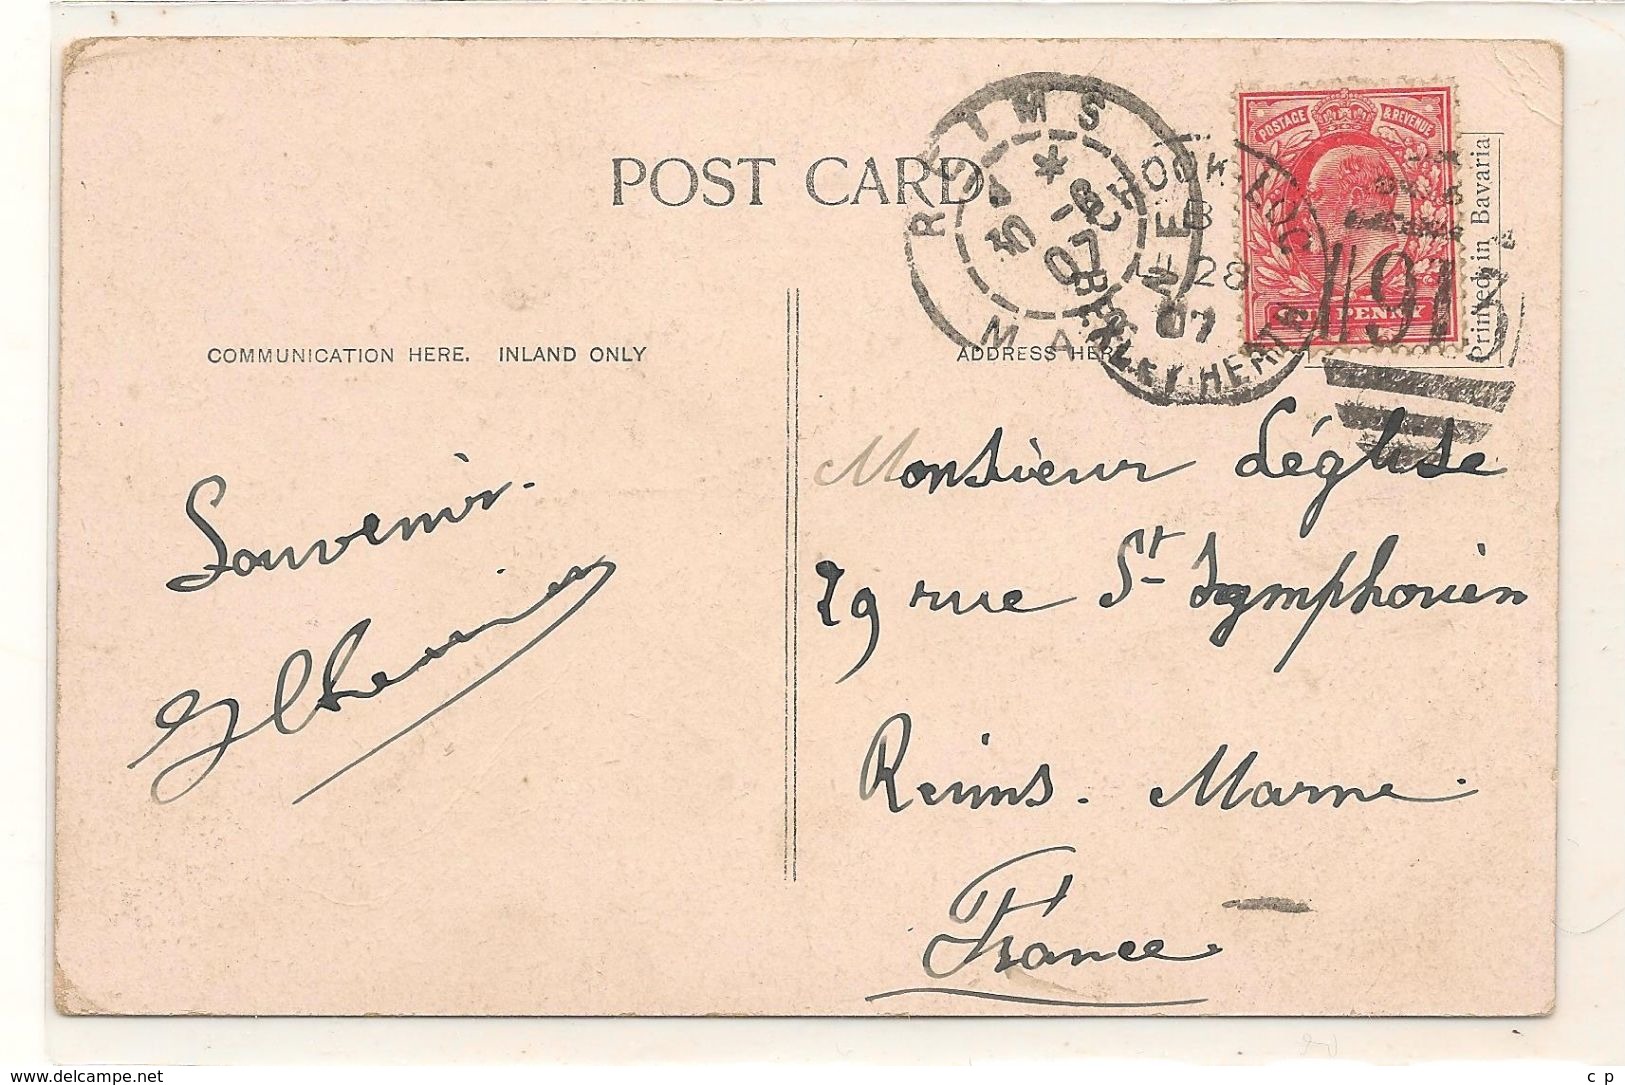 POST CARD
COMMUNICATION HERE. INLAND ONLY
ADDRESS HERE
POSTAGE & REVENUE
ONE PENNY
Printed in Bavaria
REIMS
MA
30 - 8
07
28
07
913
Souvenir.
Monsieur Léglise
29 rue St Symphorien
Reims. Marne.
France
www.delcampe.net
c p